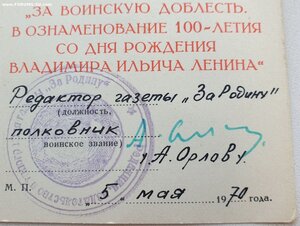 „ЗА ВОИНСКУЮ ДОБЛЕСТЬ.
В ОЗНАМЕНОВАНИЕ 100-ЛЕТИЯ
СО ДНЯ РОЖДЕНИЯ
ВЛАДИМИРА ИЛЬИЧА ЛЕНИНА“
Редактор газеты „За Родину“
(должность,
полковник
воинское звание)
/А. Орлов/
М. П.
„5“ мая 1970 года.
„За Родину“